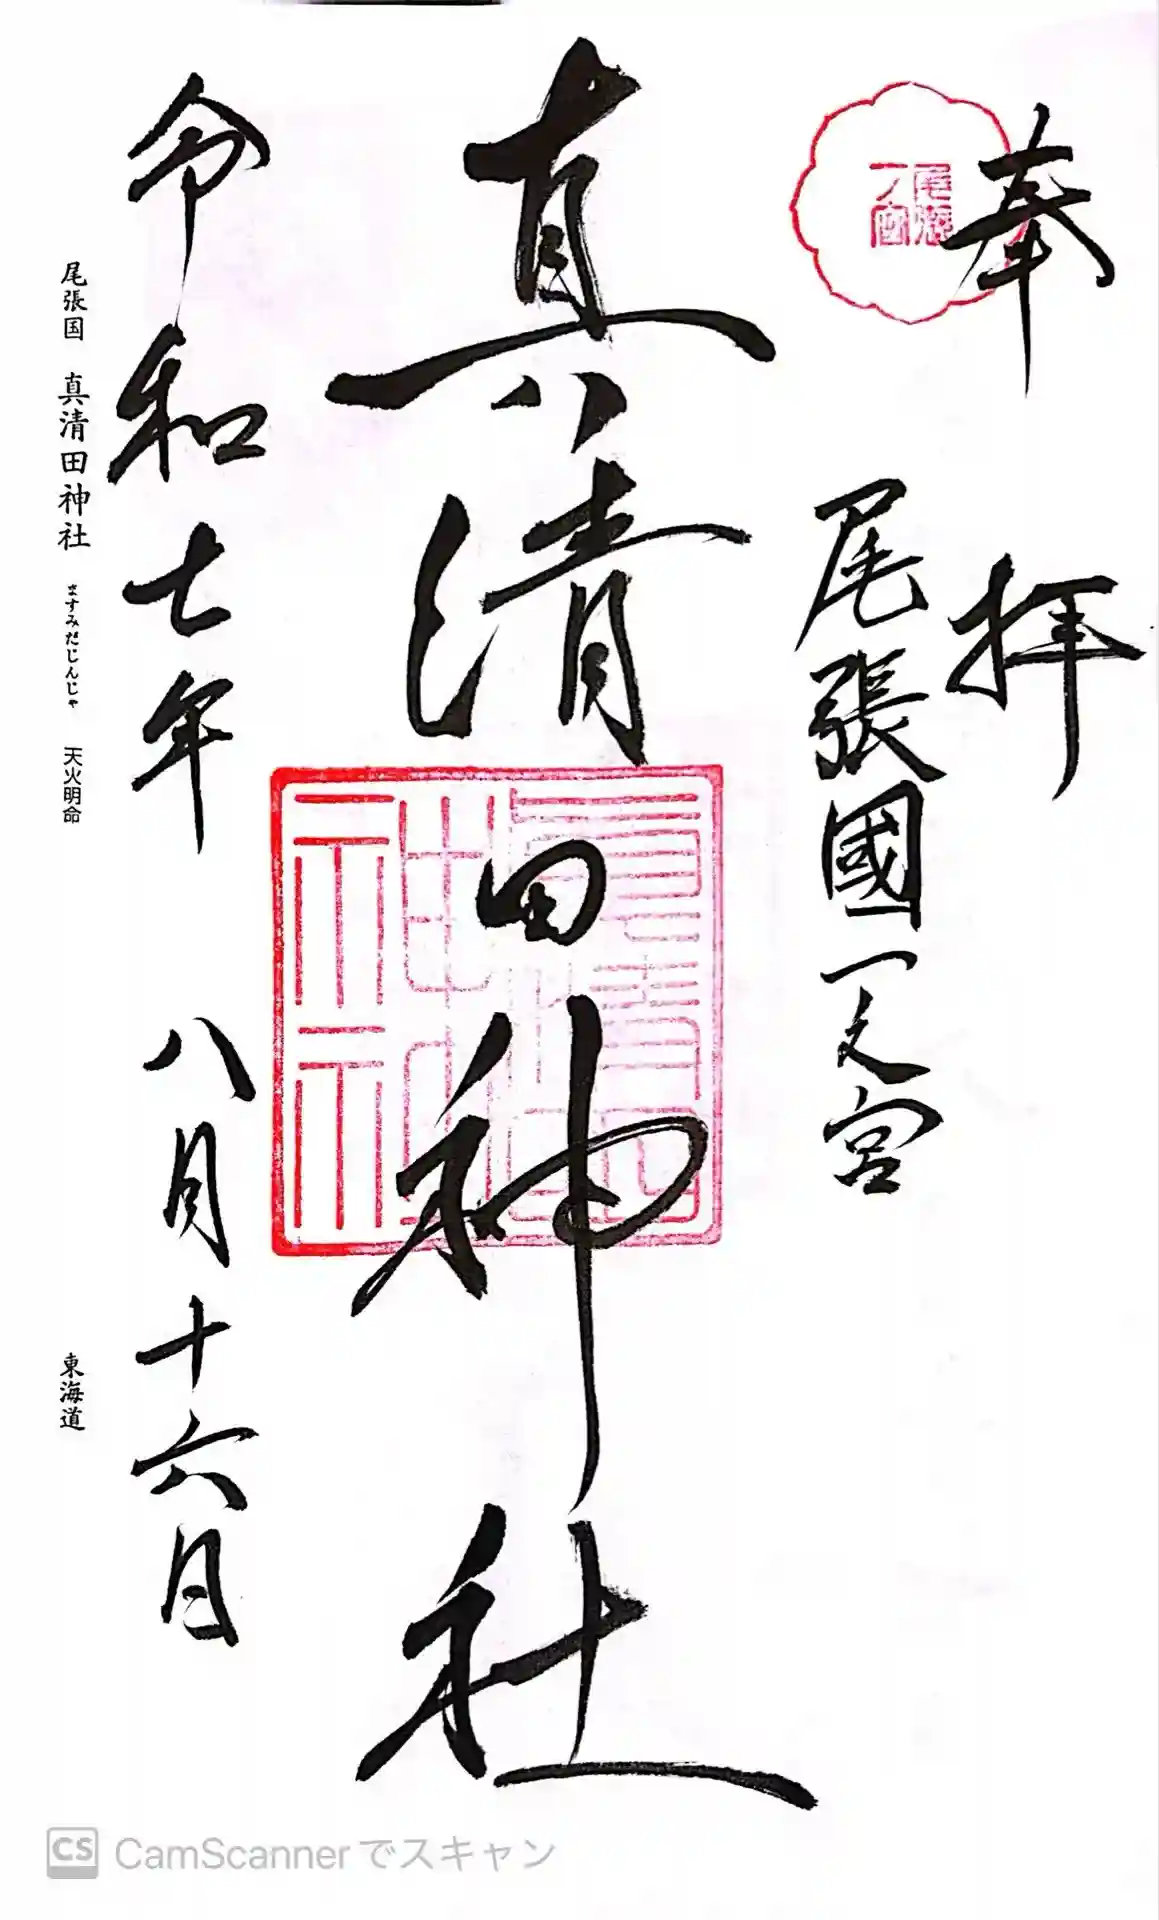 奉拝
尾張一ノ宮
尾張國一之宮
真清田神社
真清田神社
令和七年 八月十六日
尾張国 真清田神社 ますみだじんじゃ 天火明命 東海道
CS CamScannerでスキャン